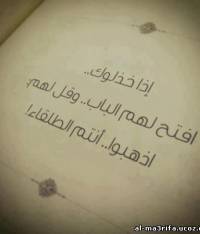 إذا خذلوك..
افتح لهم الباب.. وقل لهم:
اذهبوا.. أنتم الطلقاء!
al-ma3rifa.ucoz.c